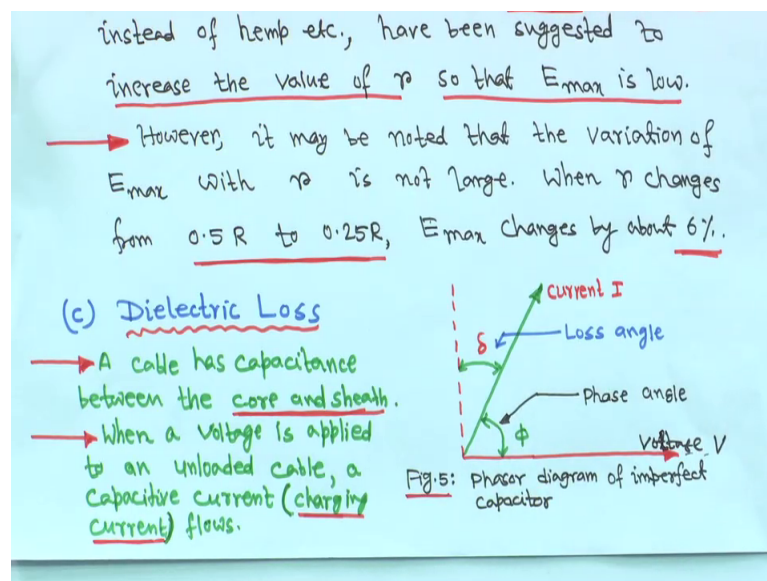 instead of hemp etc., have been suggested to
increase the value of r so that Emax is low.
However, it may be noted that the variation of
Emax with r is not large. When r changes
from 0.5 R to 0.25R, Emax changes by about 6%.
(c) Dielectric Loss
A cable has capacitance
between the core and sheath.
When a voltage is applied
to an unloaded cable, a
capacitive current (charging
current) flows.
current I
δ
Loss angle
Phase angle
ϕ
Voltage V
Fig.5: Phasor diagram of imperfect
capacitor